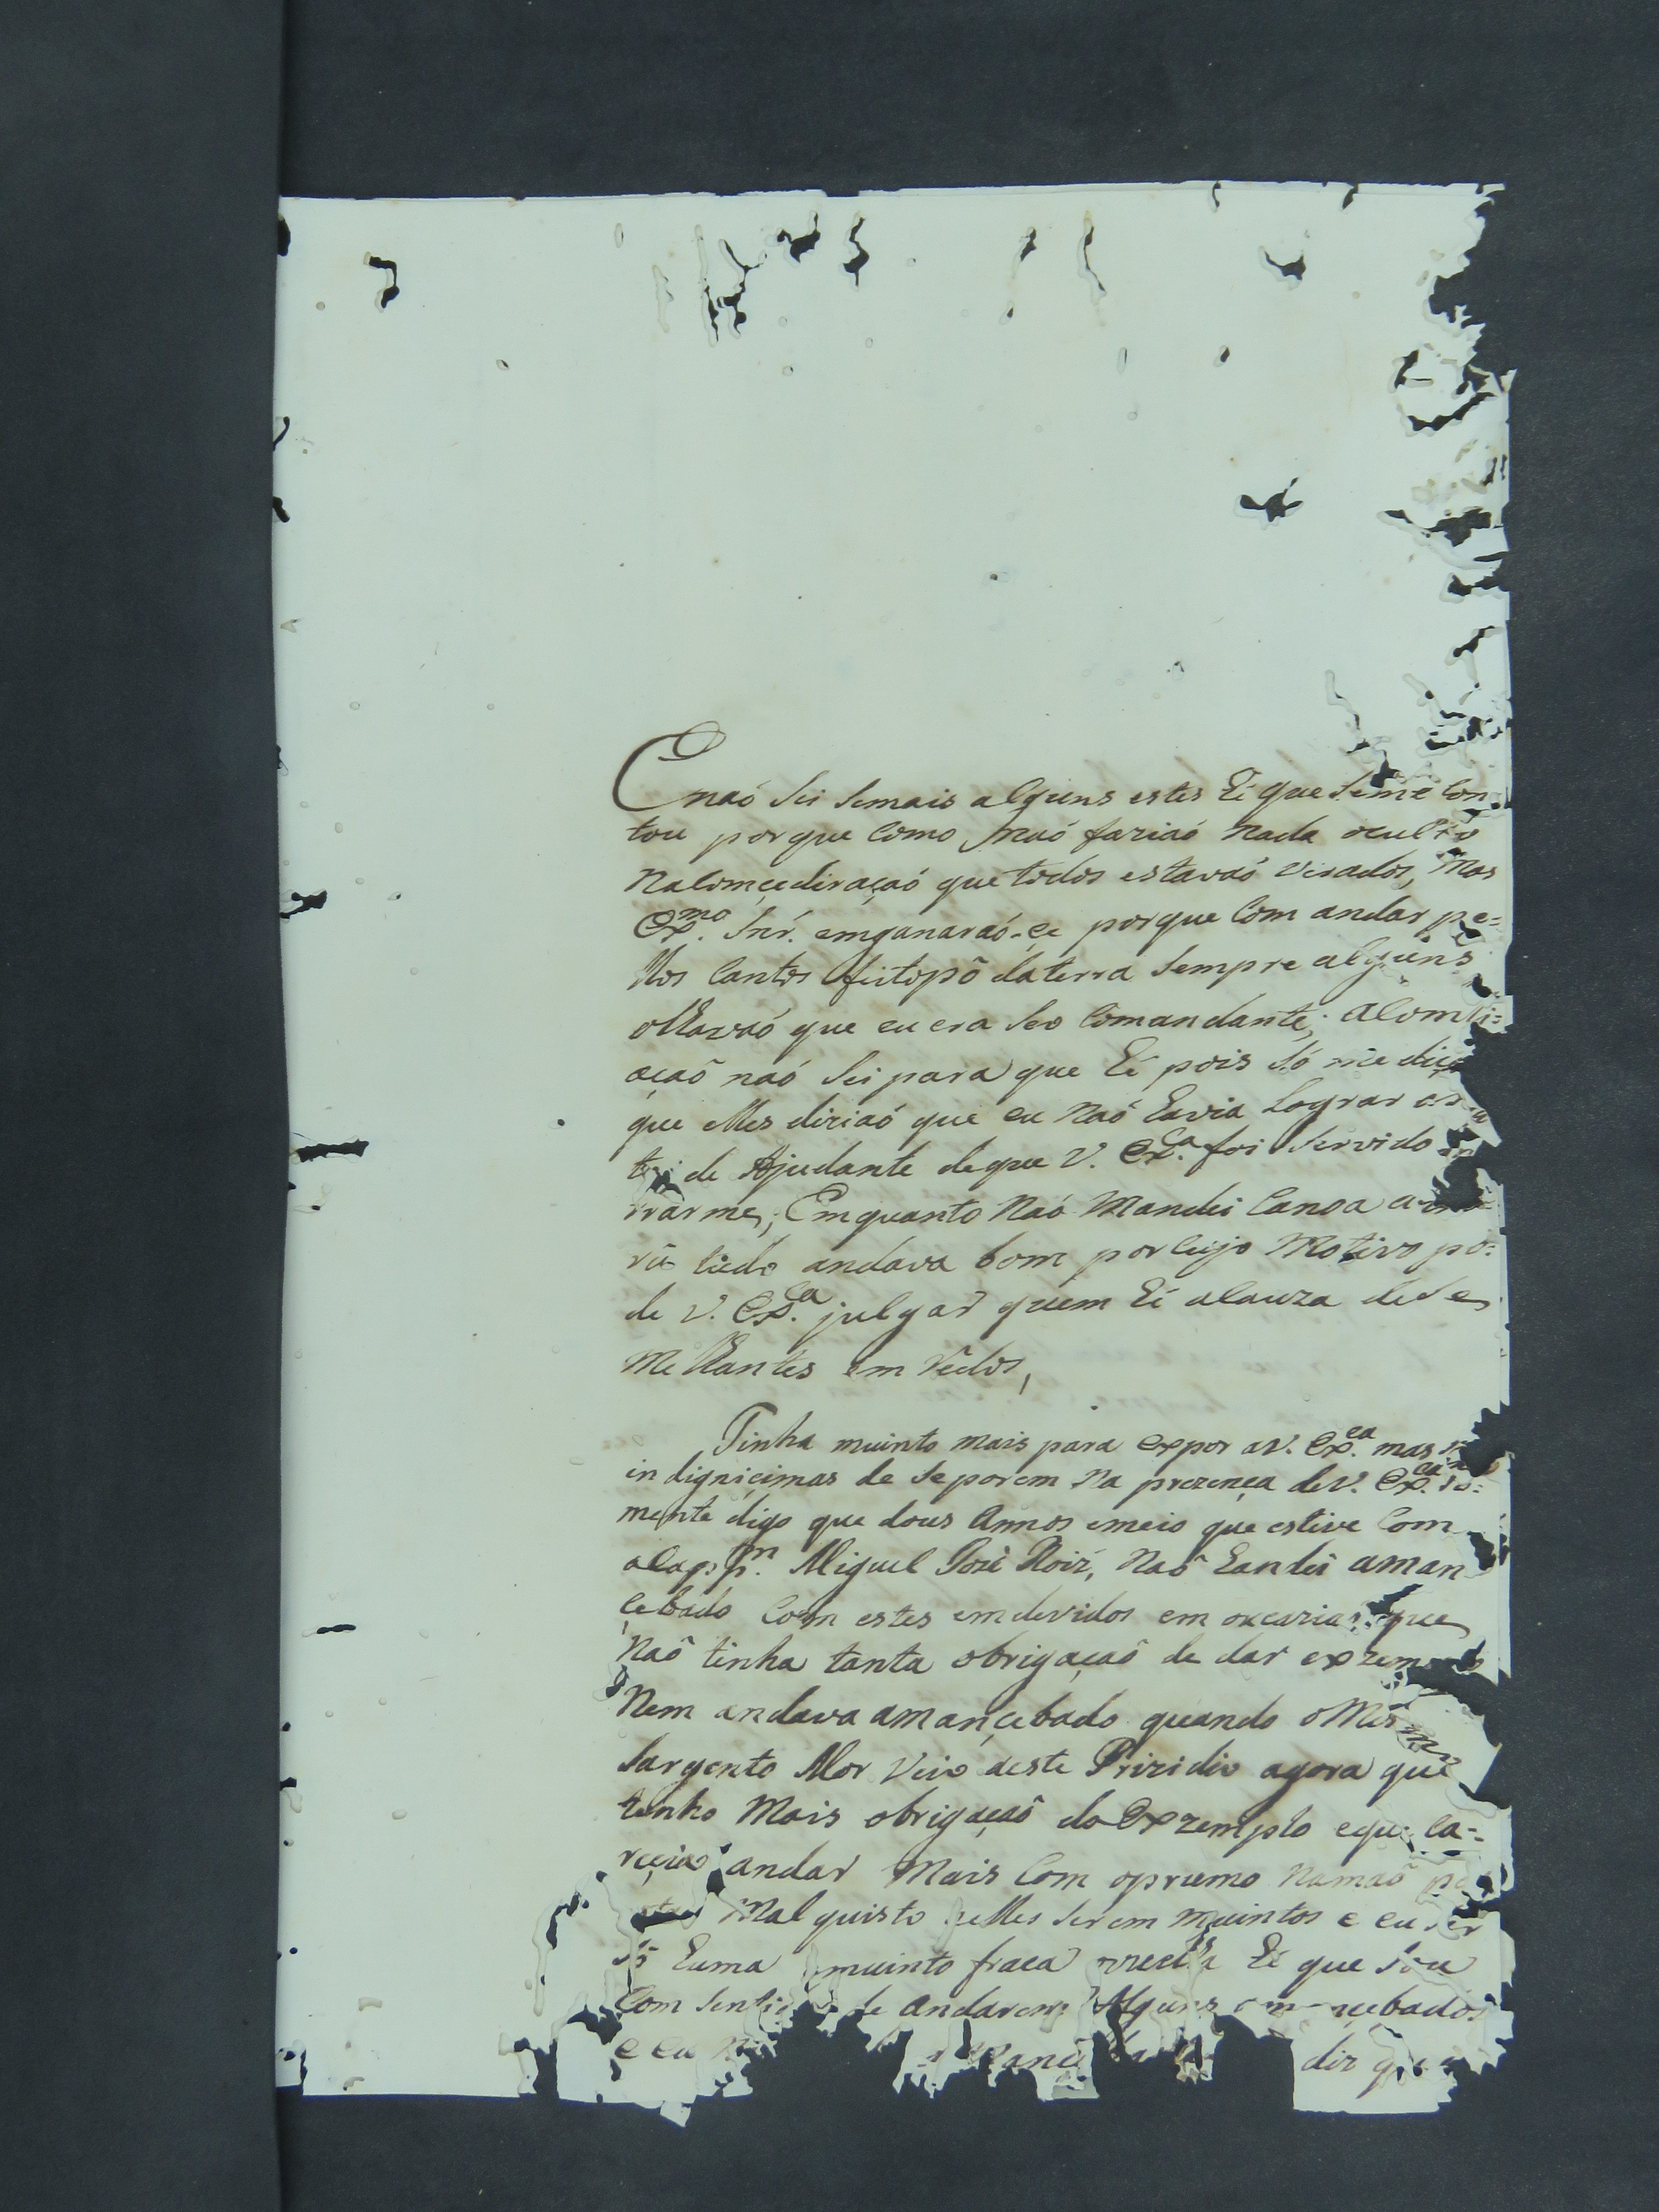 E naó sei semais alguns estes hé que seme con
tou porque como naó fariaó nada oculto
na comçediraçaó que todos estavaó vixados, Mas
Ex.mo Snr. emganaraó-ce porque com andar pe=
llos cantos feito pó da terra sempre alguns
olharaó que eu era seo Comandante; a com
açaõ naó sei para que hé pois só me diç
que elles diriaó que eu naó havia Lograr
de Ajudante de que V. Ex.ca foi servido
rrar me, Emquanto Naó Mandei Canoa
tudo andava bom por cujo Motivo po=
de V. Ex.ca julgar quem hé a cauza de se
melhantes em redos,
Tinha muinto mais para expor a V. Ex.ca mas
indigniçimas de se porem na prezença de V. Ex.ca so=
mente digo que dous Annos emeio que estive Com
o Cap.pm Miguel José Roiz, Naõ handei aman
çebado Com estes emdevidos em que
Naõ tinha tanta obrigaçaõ de dar exzem
Nem andava amançebado quando o Mesmo
Sargento Mor Veio deste Prizidio agora que
tenho Mais obrigaçaõ do Exzemplo e que ca=
reçia andar Mais Com oprumo na maõ
Mal quisto elles serem muintos e eu ser
só huma muinto fraca hé que sou
Com de andarem Alguns
e eu